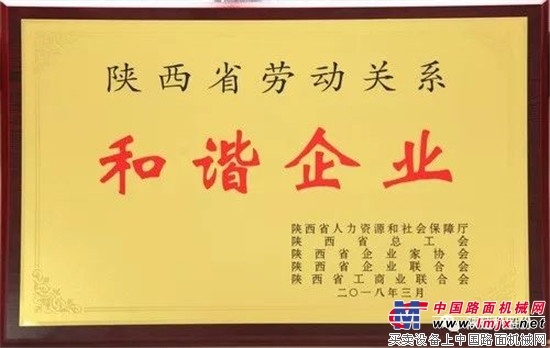 陕西省劳动关系
和谐企业
陕西省人力资源和社会保障厅
陕西省总工会
陕西省企业家协会
陕西省企业联合会
陕西省工商业联合会
二〇一八年三月
中国路面机械网
www.lmjx.net
买卖设备上中国路面机械网